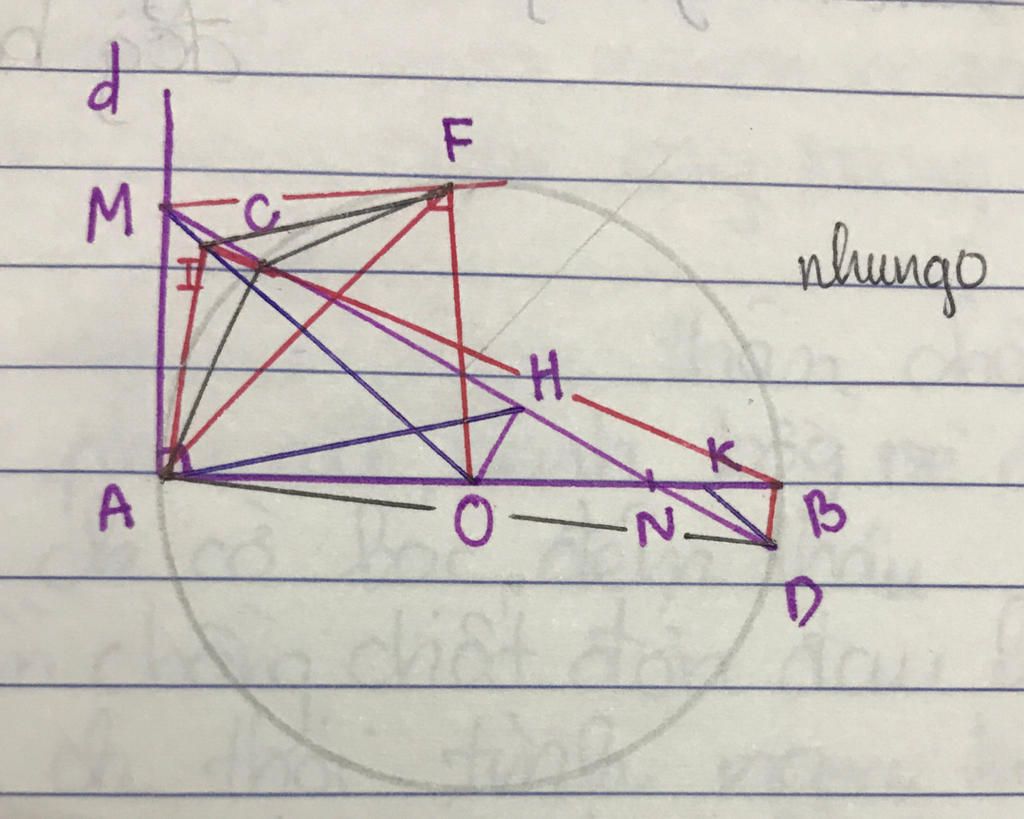 d
F
M C
I
nhungo
H
K
A O N B
D